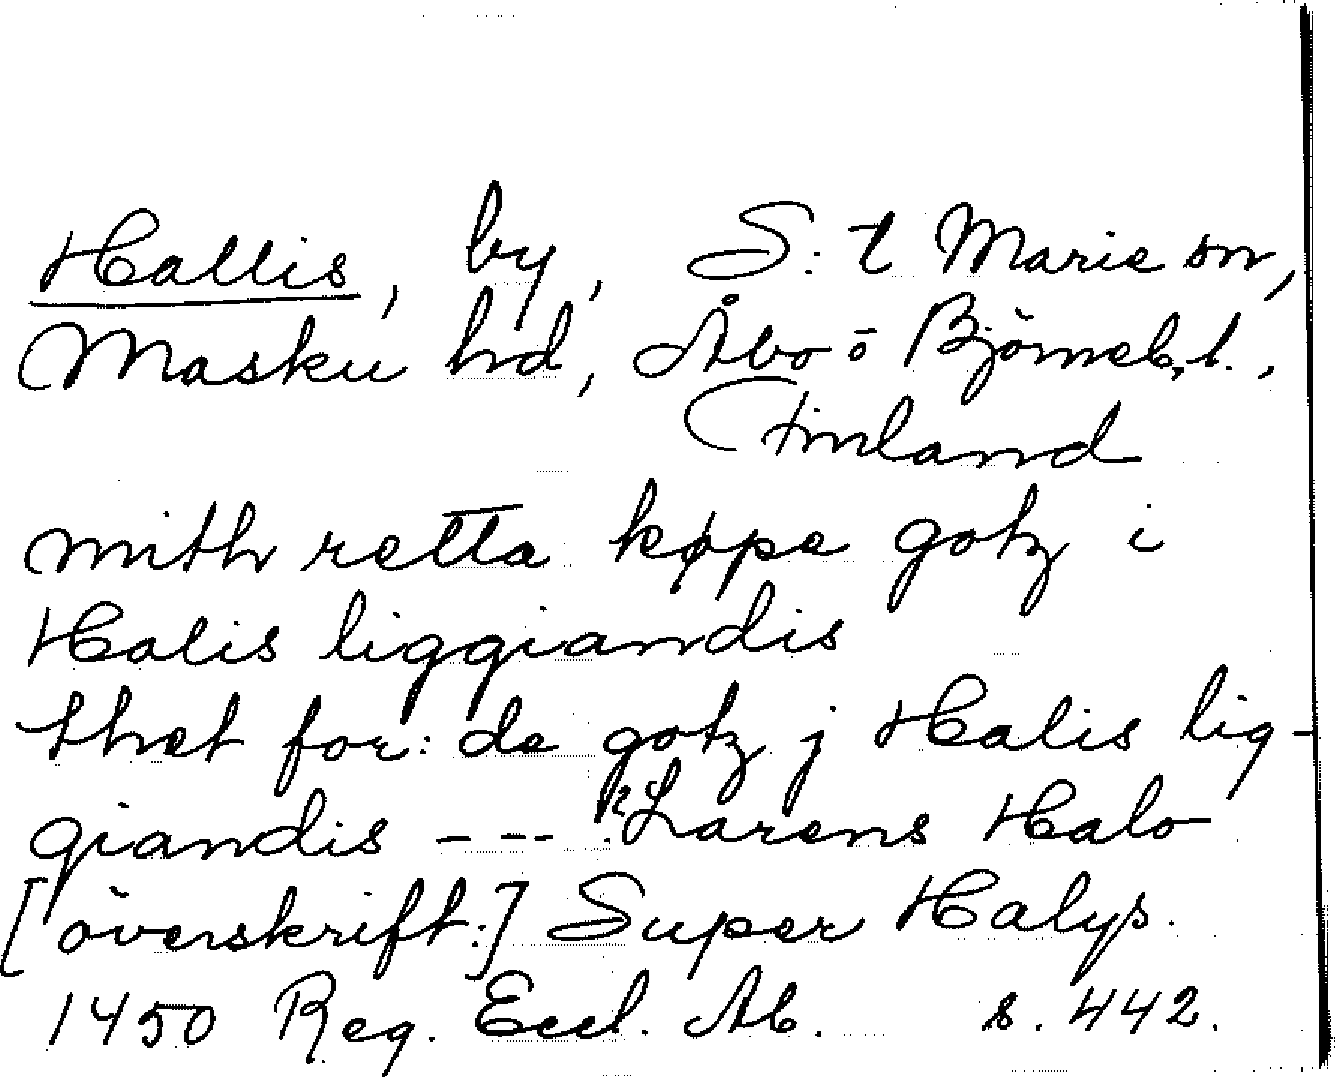 Hallis, by, S:t Marie sn,
Masku hd, Åbo o Björneb. l.,
Finland
mith retta køpe gotz i
Halis liggiandis
thet for:de gotz j Halis lig-
giandis --- Larens Halo
[överskrift:] Super Halys.
1450 Reg. Eccl. Ab. s. 442.